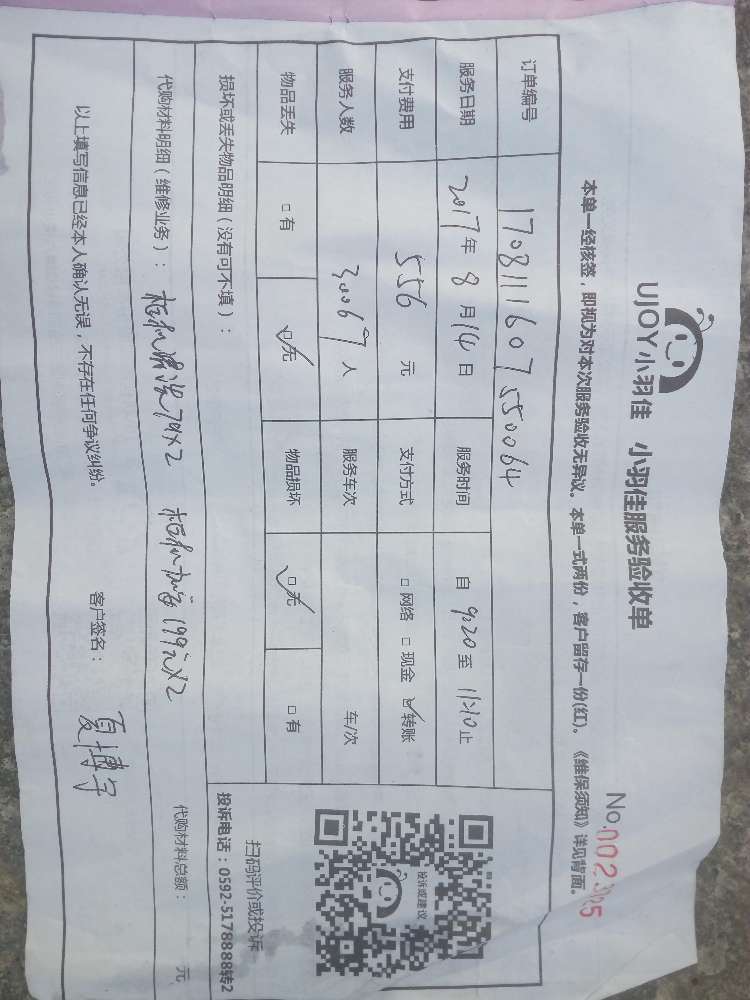 UJOY小羽佳 小羽佳服务验收单
No.
本单一经核签，即视为对本次服务验收无异议。本单一式两份，客户留存一份(红)。《维保须知》详见背面。
订单编号 1708111607550064
服务日期 2017年 8 月 14 日 服务时间 自 9:20 至 11:10 止
支付费用 556 元 支付方式 □网络 □现金 ☑转账
服务人数 人 服务车次 车/次
物品丢失 □有 ☑无 物品损坏 ☑无 □有
损坏或丢失物品明细（没有可不填）：
代购材料明细（维修业务）： 79×2 199元×2 代购材料总额： 元
以上填写信息已经本人确认无误，不存在任何争议纠纷。 客户签名： 夏博宇
投诉或建议
扫码评价或投诉
投诉电话：0592-5178888转2